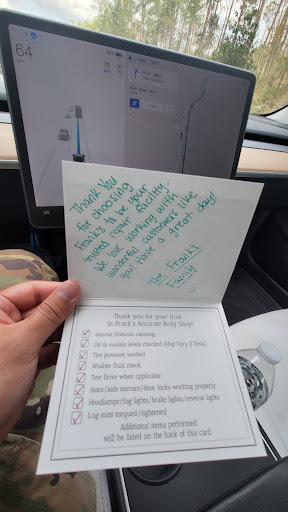 64
Thank You
for choosing
Frank's to be your
trusted repair facility.
We love working with
wonderful customers like
you! Have a great day!
The Frank's
Family
Thank you for your trust
in Frank's Accurate Body Shop!
Interior/Exterior cleaning
Oil & coolant levels checked (May Vary 3 Tesla)
Tire pressure verified
Washer fluid check
Test Drive when applicable
Horn/side mirrors/door locks working properly
Headlamps/fog lights/brake lights/reverse lights
Lug nuts torqued/tightened
Additional items performed
will be listed on the back of this card